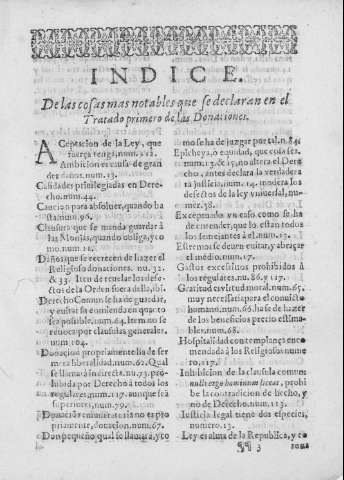 INDICE.
De las cosas mas notables que se declaran en el
Tratado primero de las Donaciones.
ACeptacion de la Ley, que
fuerça tenga, num. 112.
Ambicion es causa de grandes
daños. num. 13.
Calidades priuilegiadas en Derecho.
num. 44.
Caucion para absoluer, quando basta.
num. 96.
Clausura que se manda guardar à
las Monjas, quando obliga, y como,
num. 11.
Daños que se recrecen de hazer el
Religioso donaciones. nu. 32.
& 33. Iten de reuelar los defectos
de la Orden fuera della, ibi.
Derecho Comun se ha de guardar,
y euitar se comiendo en quanto
sea posible. num. 64. Item no se
reuoca por clausulas generales.
num. 104.
Donacion propriamente ha de ser
mera liberalidad, num. 62. Qual
se llama indirecta. nu. 73. prohibida
por Derecho à todos los
regulares, num. 117. aunque sea
superiores, num. 79.
Donacion remuneratoria no es propriamente,
donacion, num. 67.
Don pequeño qual se llamara, y como
mo se ha de juzgar por tal. n. 84.
Epicheya, ò equidad, que cosa sea.
num. 13. & 15. no altera el Derecho,
antes declara la verdadera
justicia, num. 14. modera los
defectos de la ley vniversal, numer.
38.
Exceptuado vn caso como se ha
de entender, que lo estan todos
los semejantes à el. num. 13.
Estremos se deuen euitar, y abraçar
el medio. num. 17.
Gastos excessiuos prohibidos à
los regulares. nu. 86. y 117.
Gratitud es virtud moral. num. 65.
muy necessaria para el conuicto
humano, num. 66. como se ha de hazer
de los beneficios precio estimables.
num. 68.
Hospitalidad con templança encomendada
à los Religiosos numero
117.
Inhibicion de la clausula comun:
nulli ergo hominum liceat, prohibe
la contradicion de hecho, y
no de Derecho. num. 113.
Iusticia legal tiene dos especies,
numero. 13.
Ley es alma de la Republica, y co
¶¶ 3